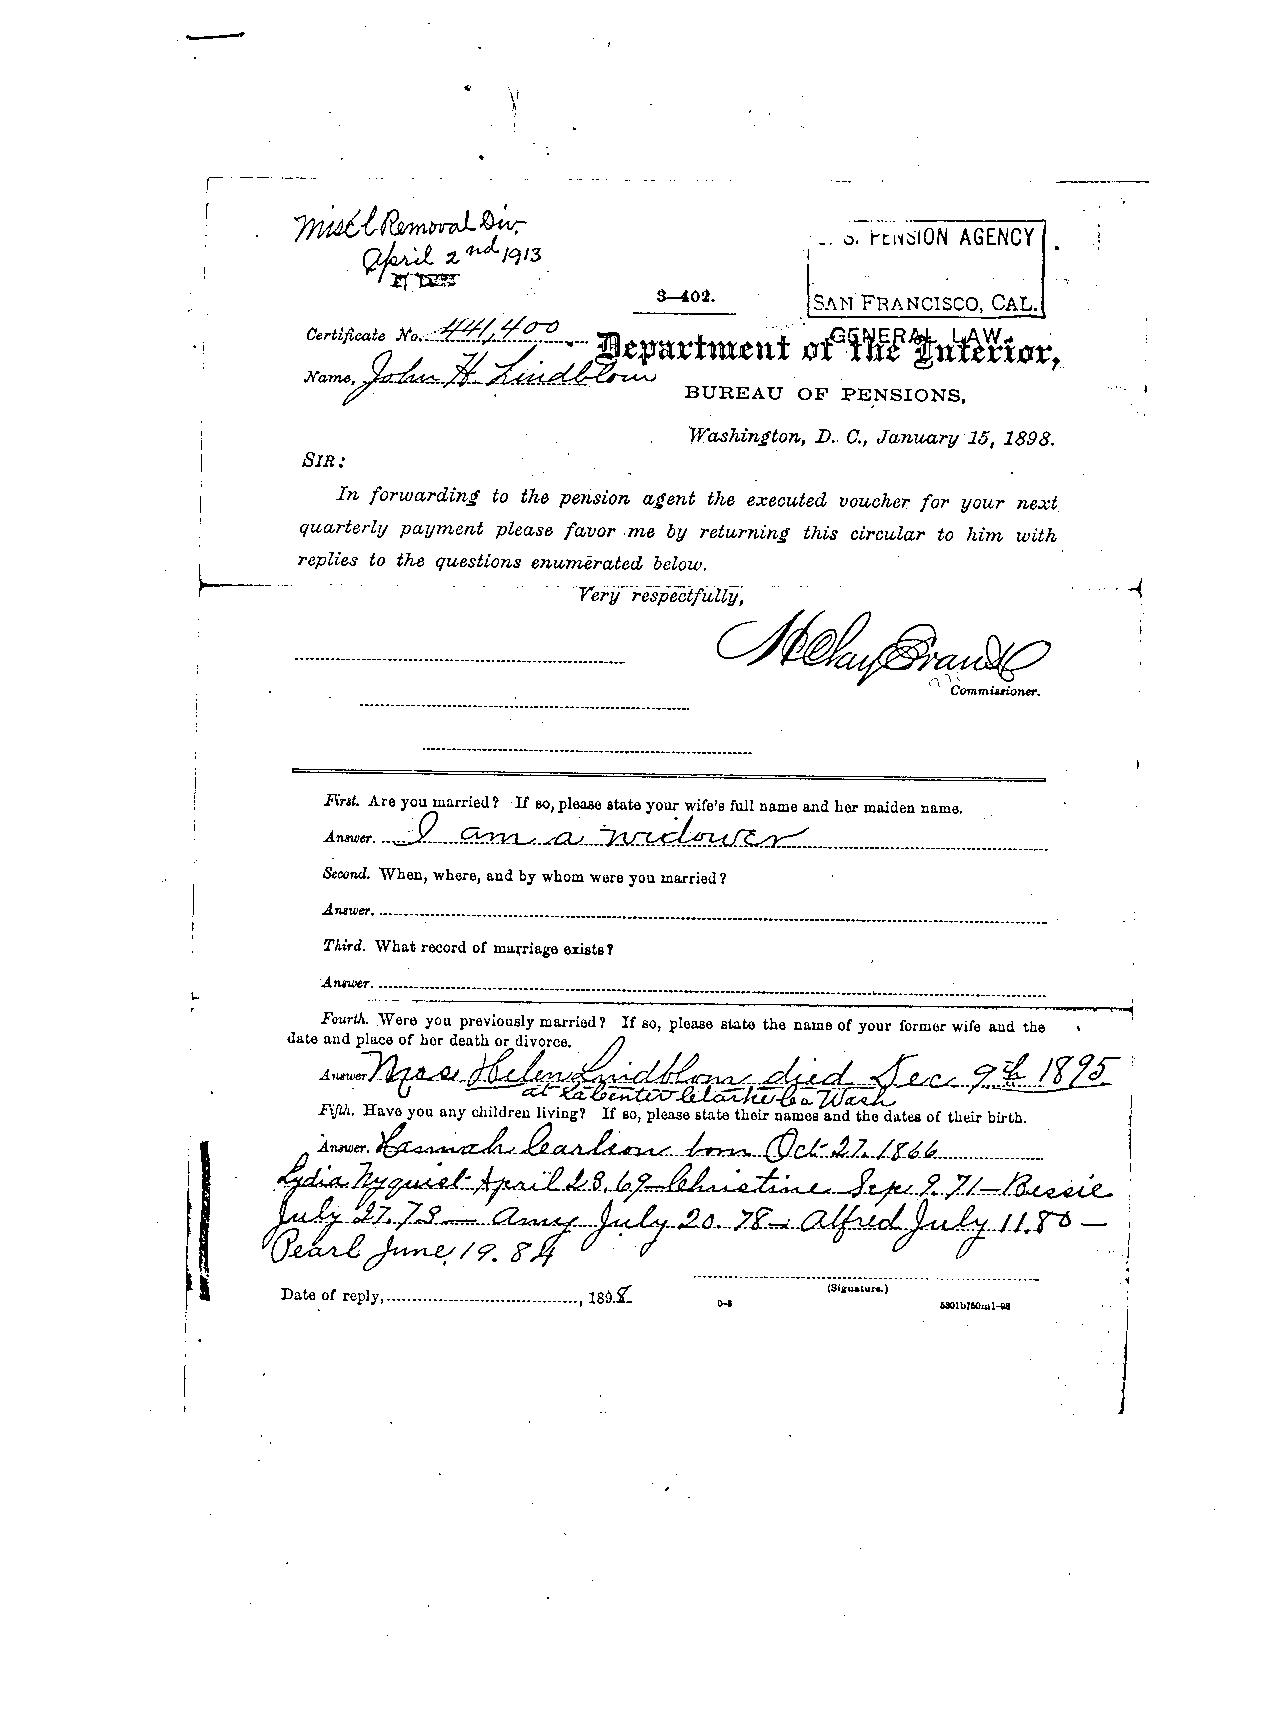 Misc'l Removal Div.
April 2nd 1913
U.S. PENSION AGENCY
SAN FRANCISCO, CAL.
3—402.
GENERAL LAW.
Certificate No. 441,400
Department of the Interior,
Name, John H. Lindblom
BUREAU OF PENSIONS,
Washington, D. C., January 15, 1898.
SIR:
In forwarding to the pension agent the executed voucher for your next
quarterly payment please favor me by returning this circular to him with
replies to the questions enumerated below.
Very respectfully,
H Clay Evans
Commissioner.
First. Are you married? If so, please state your wife's full name and her maiden name.
Answer. I am a widower
Second. When, where, and by whom were you married?
Answer.
Third. What record of marriage exists?
Answer.
Fourth. Were you previously married? If so, please state the name of your former wife and the
date and place of her death or divorce.
Answer Mrs. Helen Lindblom died Dec 9th 1895
at La Center Clarke Co Wash
Fifth. Have you any children living? If so, please state their names and the dates of their birth.
Answer. Hannah Carlson born Oct 27. 1866
Lydia Nyquist April 28, 69— Christine Sep 9. 71— Bessie
July 27. 73— Amy July 20. 78— Alfred July 11. 80—
Pearl June 19. 84
(Signature.)
Date of reply, , 1898
0-3
5301b750m1-98